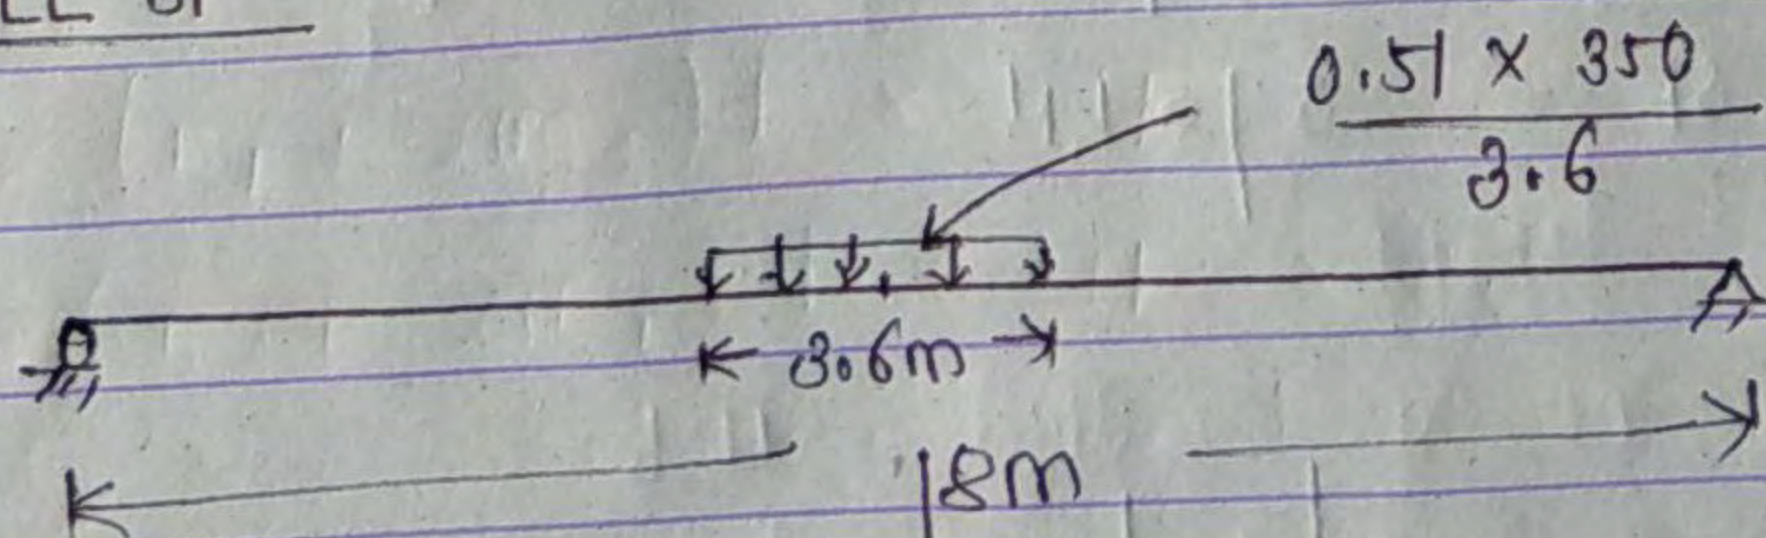 0.51 x 350
3.6
3.6m
18m